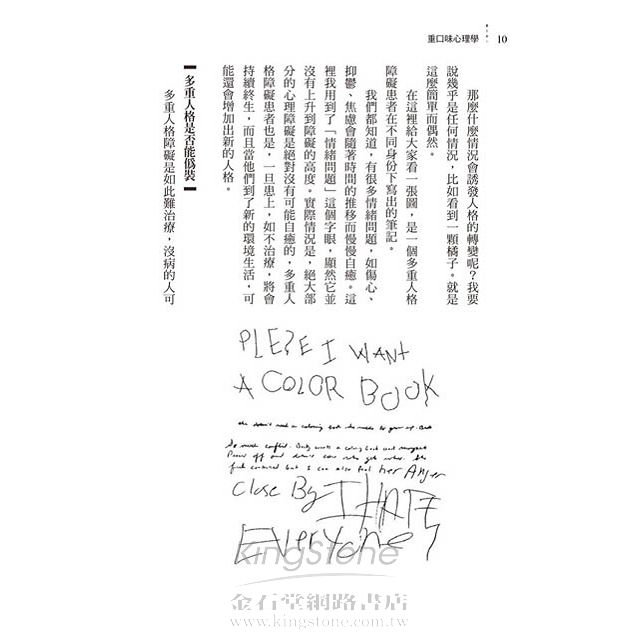 重口味心理學
10
那麼什麼情況會誘發人格的轉變呢？我要
說幾乎是任何情況，比如看到一顆橘子。就是
這麼簡單而偶然。
在這裡給大家看一張圖，是一個多重人格
障礙患者在不同身份下寫出的筆記。
我們都知道，有很多情緒問題，如傷心、
抑鬱、焦慮會隨著時間的推移而慢慢自癒。這
裡我用到了「情緒問題」這個字眼，顯然它並
沒有上升到障礙的高度。實際情況是，絕大部
分的心理障礙是絕對沒有可能自癒的，多重人
格障礙患者也是，一旦患上，如不治療，將會
持續終生，而且當他們到了新的環境生活，可
能還會增加出新的人格。
【多重人格是否能偽裝】
多重人格障礙是如此難治療，沒病的人可
PLESE I WANT
A COLOR BOOK
she doesn't need a coloring book she needs to grow up. But
So much conflict. Body wants a coloring book and
off and doesn't care who gets
but I can also feel her Anger
Close By I HATE
EVERYONE
KingStone
金石堂網路書店
www.kingstone.com.tw